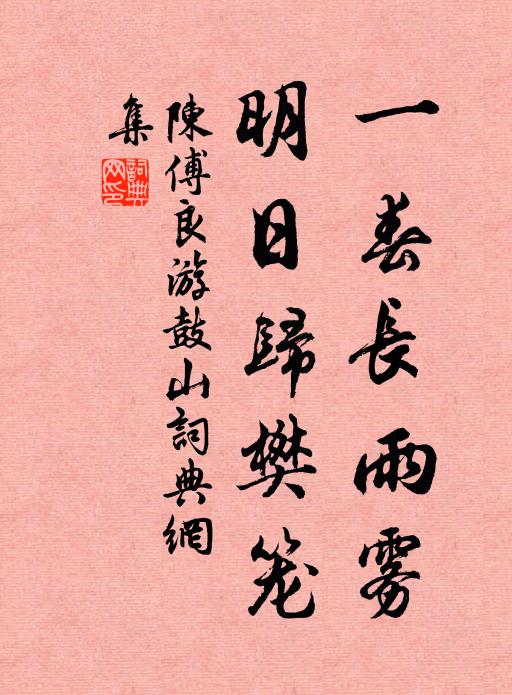 一春長雨雾
明日歸樊笼
陳傅良游鼓山詞典網
集
詞典网印